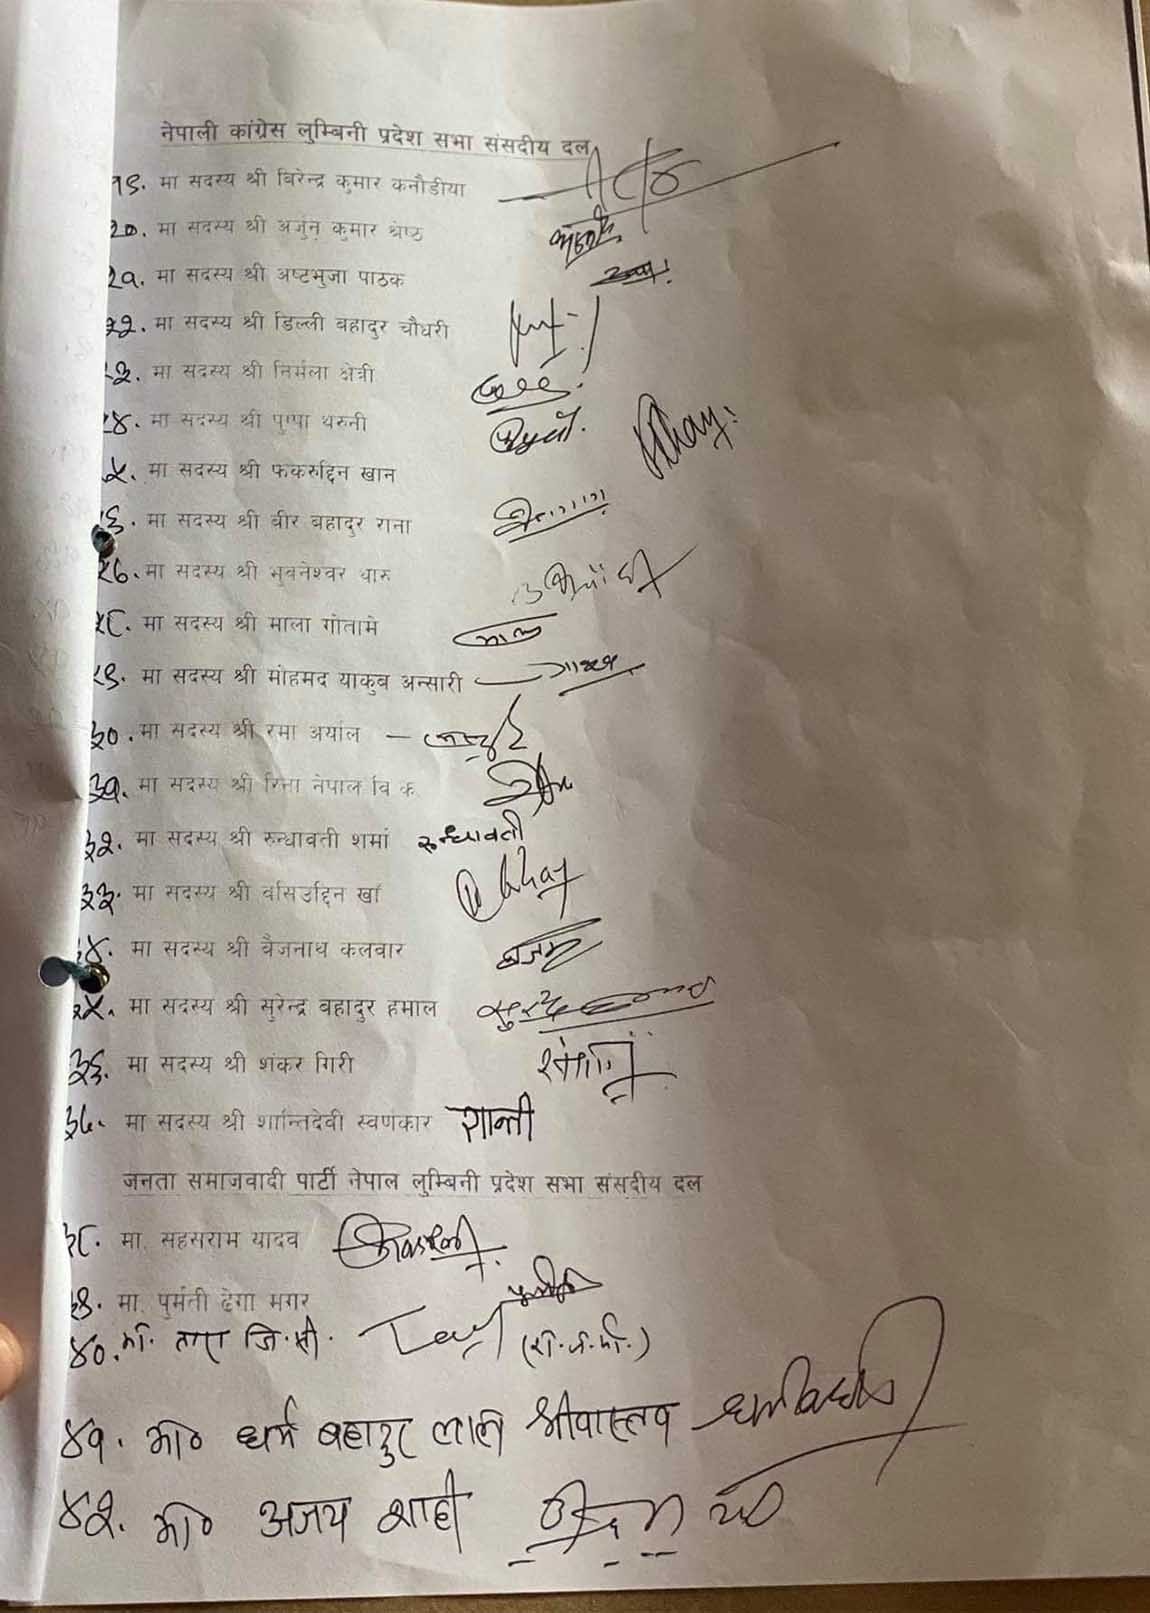 नेपाली कांग्रेस लुम्बिनी प्रदेश सभा संसदीय दल
१९. मा सदस्य श्री बिरेन्द्र कुमार कनौडीया
२०. मा सदस्य श्री अर्जुन कुमार श्रेष्ठ
२१. मा सदस्य श्री अष्टभुजा पाठक
२२. मा सदस्य श्री डिल्ली बहादुर चौधरी
२३. मा सदस्य श्री निर्मला क्षेत्री
२४. मा सदस्य श्री पुष्पा थरुनी
२५. मा सदस्य श्री फकरुद्दिन खान
२६. मा सदस्य श्री बीर बहादुर राना
२७. मा सदस्य श्री भुवनेश्वर थारु
२८. मा सदस्य श्री माला गोतामे
२९. मा सदस्य श्री मोहमद याकुब अन्सारी
३०. मा सदस्य श्री रमा अर्याल
३१. मा सदस्य श्री रिना नेपाल वि क
३२. मा सदस्य श्री रुन्धावती शर्मा रुन्धावती
३३. मा सदस्य श्री वसिउद्दिन खाँ
३४. मा सदस्य श्री बैजनाथ कलवार
३५. मा सदस्य श्री सुरेन्द्र बहादुर हमाल
३६. मा सदस्य श्री शंकर गिरी
३७. मा सदस्य श्री शान्तिदेवी स्वर्णकार शान्ती
जनता समाजवादी पार्टी नेपाल लुम्बिनी प्रदेश सभा संसदीय दल
३८. मा. सहसराम यादव
३९. मा. पुर्मती ढेगा मगर
४०. मा. तारा जि.सी. (रा.ज.मो.)
४१. मा० धर्म बहादुर लाल श्रीवास्तव
४२. मा० अजय शाही